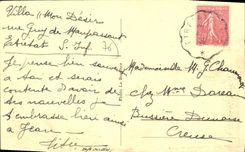 Villa "Mon Désir"
rue Guy de Maupassant
Etretat S. Inf. 76
Je pense bien souvent
à toi et serais
contente d'avoir de
tes nouvelles. Je
t'embrasse bien ainsi
Jean
Mademoiselle
chez Mme
Bussière Dunoise
Creuse